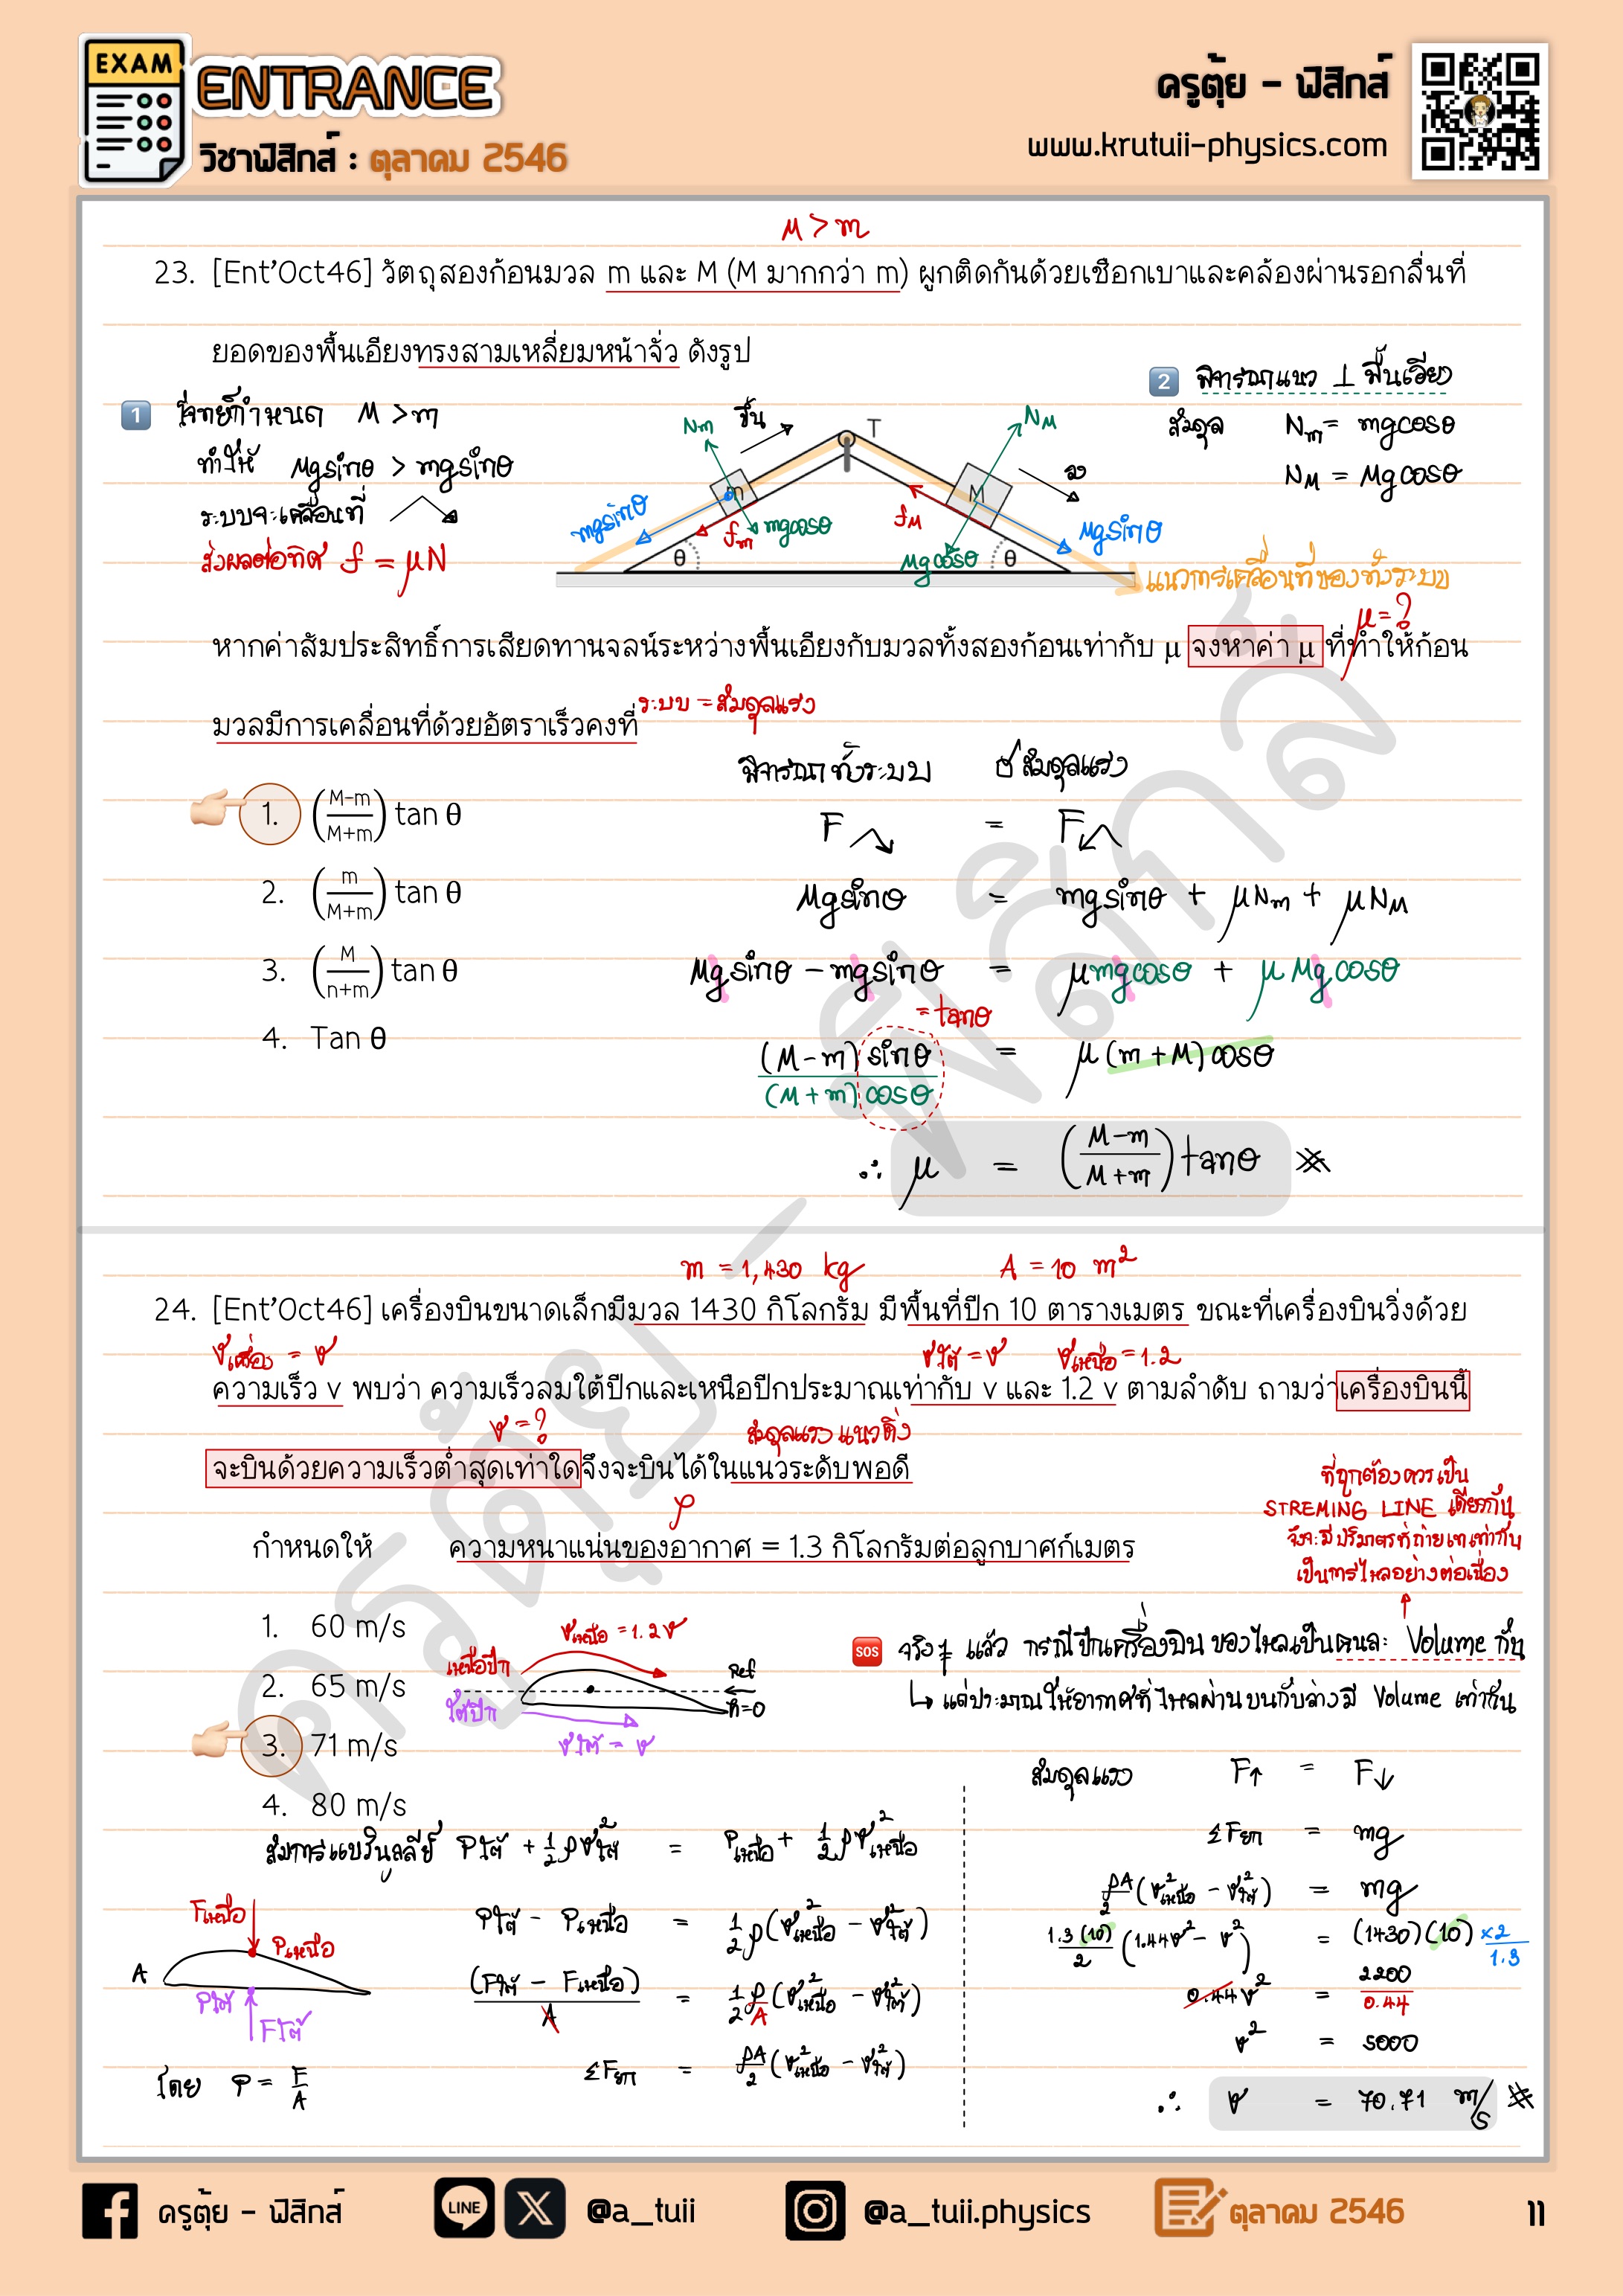 EXAM
ENTRANCE
วิชาฟิสิกส์ : ตุลาคม 2546
ครูตุ้ย - ฟิสิกส์
www.krutuii-physics.com
M > m
23. [Ent'Oct46] วัตถุสองก้อนมวล m และ M (M มากกว่า m) ผูกติดกันด้วยเชือกเบาและคล้องผ่านรอกลื่นที่
ยอดของพื้นเอียงทรงสามเหลี่ยมหน้าจั่ว ดังรูป
1 โจทย์กำหนด M > m
ทำให้ Mgsinθ > mgsinθ
ระบบจะเคลื่อนที่
ส่งผลต่อทิศ f = μN
2 พิจารณาแนว ⊥ พื้นเอียง
สมดุล Nm = mgcosθ
NM = Mgcosθ
Nm ขึ้น T NM
m M ลง
mgsinθ fm mgcosθ fM Mgsinθ
θ Mgcosθ θ
แนวการเคลื่อนที่ของทั้งระบบ
μ = ?
หากค่าสัมประสิทธิ์การเสียดทานจลน์ระหว่างพื้นเอียงกับมวลทั้งสองก้อนเท่ากับ μ จงหาค่า μ ที่ทำให้ก้อน
มวลมีการเคลื่อนที่ด้วยอัตราเร็วคงที่ ระบบ = สมดุลแรง
พิจารณาทั้งระบบ สมดุลแรง
1. (M-m/M+m) tan θ
2. (m/M+m) tan θ
3. (M/n+m) tan θ
4. Tan θ
F = F
Mgsinθ = mgsinθ + μNm + μNM
Mgsinθ - mgsinθ = μmgcosθ + μMgcosθ
= tanθ
(M-m) sinθ / (M+m) cosθ = μ(m+M)cosθ
∴ μ = (M-m/M+m) tanθ
m = 1,430 kg A = 10 m²
24. [Ent'Oct46] เครื่องบินขนาดเล็กมีมวล 1430 กิโลกรัม มีพื้นที่ปีก 10 ตารางเมตร ขณะที่เครื่องบินวิ่งด้วย
vเครื่อง = v vใต้ = v vเหนือ = 1.2
ความเร็ว v พบว่า ความเร็วลมใต้ปีกและเหนือปีกประมาณเท่ากับ v และ 1.2 v ตามลำดับ ถามว่าเครื่องบินนี้
v = ? สมดุลแรงแนวดิ่ง
จะบินด้วยความเร็วต่ำสุดเท่าใดจึงจะบินได้ในแนวระดับพอดี
ρ
กำหนดให้ ความหนาแน่นของอากาศ = 1.3 กิโลกรัมต่อลูกบาศก์เมตร
ที่ถูกต้องควรเป็น
STREMING LINE เดียวกัน
จึงจะมีปริมาตรที่ถ่ายเทเท่ากัน
เป็นการไหลอย่างต่อเนื่อง
SOS จริง ๆ แล้ว กรณีปีกเครื่องบิน ของไหลเป็นคนละ Volume กัน
แต่ประมาณให้อากาศที่ไหลผ่านบนกับล่างมี Volume เท่ากัน
1. 60 m/s
2. 65 m/s
3. 71 m/s
4. 80 m/s
vเหนือ = 1.2v
เหนือปีก
Ref
ใต้ปีก h=0
vใต้ = v
สมการแบร์นูลลีย์ Pใต้ + 1/2 ρv²ใต้ = Pเหนือ + 1/2 ρv²เหนือ
Pใต้ - Pเหนือ = 1/2 ρ(v²เหนือ - v²ใต้)
(Fใต้ - Fเหนือ)/A = 1/2 ρ/A (v²เหนือ - v²ใต้)
ΣFยก = ρA/2 (v²เหนือ - v²ใต้)
Fเหนือ
Pเหนือ
A
Pใต้
Fใต้
โดย P = F/A
สมดุลแรง F↑ = F↓
ΣFยก = mg
ρA/2 (v²เหนือ - v²ใต้) = mg
1.3(10)/2 (1.44v² - v²) = (1430)(10) ×2/1.3
0.44v² = 2200/0.44
v² = 5000
∴ v = 70.71 m/s
ครูตุ้ย - ฟิสิกส์
ครูตุ้ย - ฟิสิกส์
LINE
@a_tuii
@a_tuii.physics
ตุลาคม 2546
11